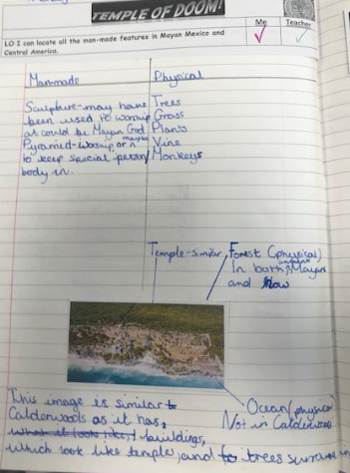 TEMPLE OF DOOM!
Me Teacher
LO I can locate all the man-made features in Mayan Mexico and
Central America.
Man-made Physical
Sculpture-may have Trees
been used to worship Grass
at could be Mayan God Plants
Pyramid-worship or maybe Vine
to keep special person/ Monkeys
body in.
Temple-similar Forest (physical)
In both, Mayan
and now
Ocean (physical)
Not in Calderwoods
This image is similar to
Calderwoods as it has,
what it look like, buildings,
which look like temple, and to trees surround in